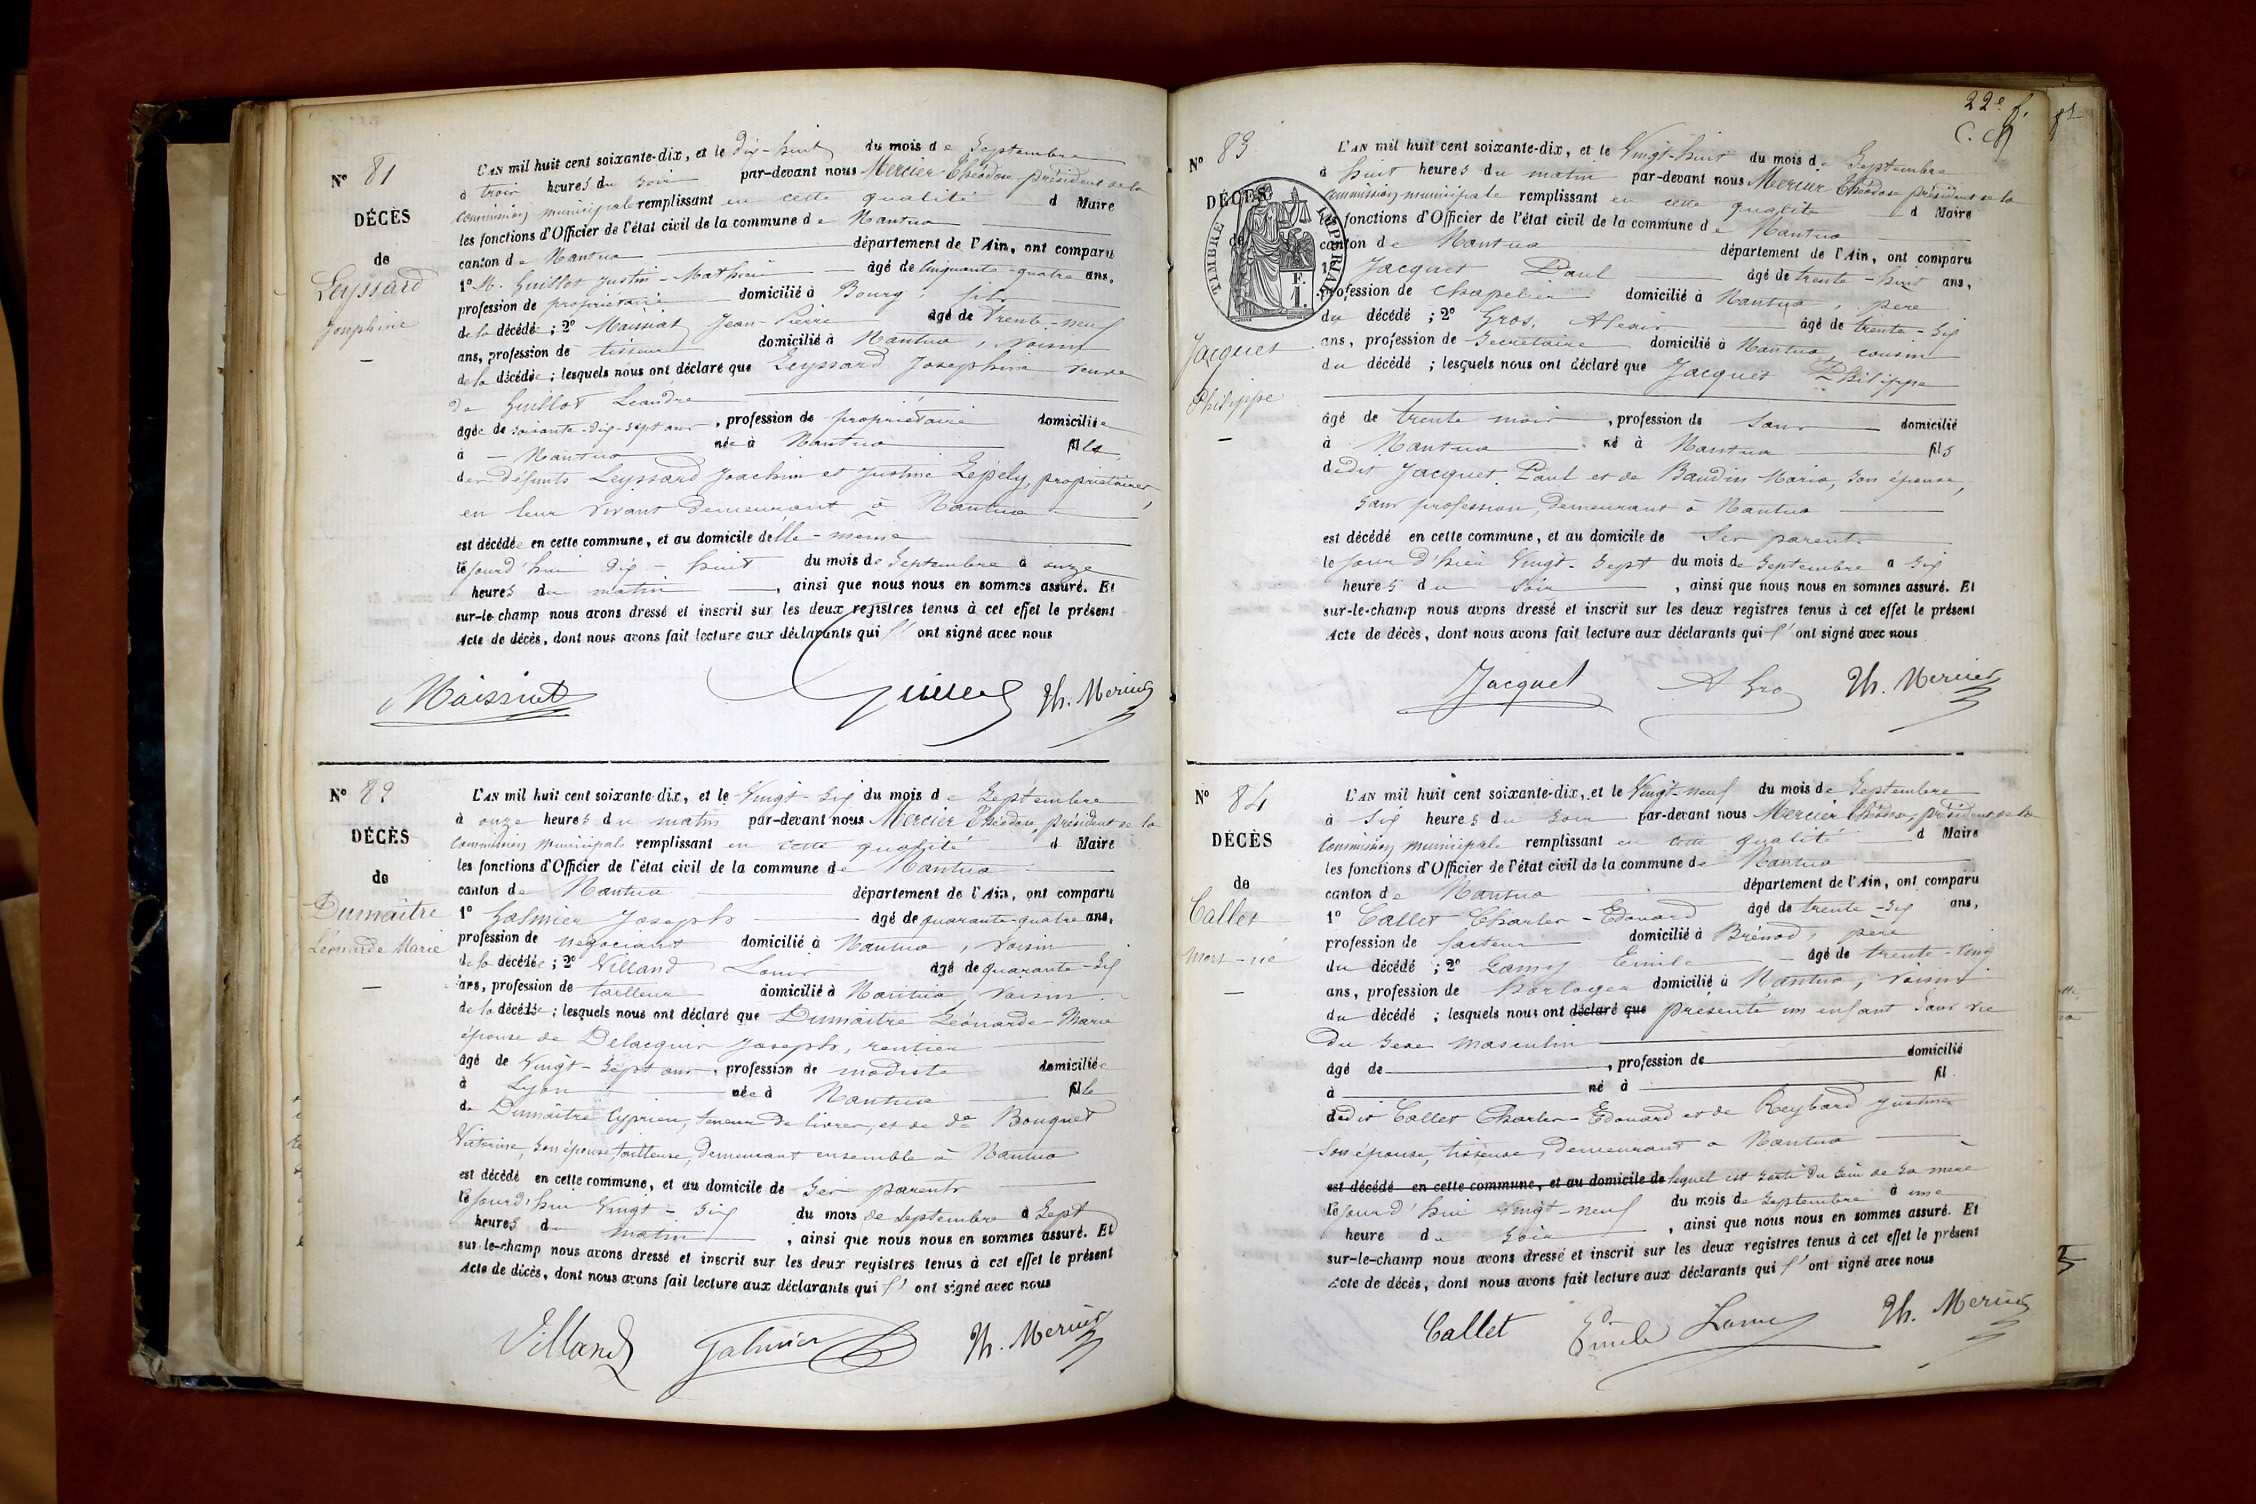 N° 81
DÉCÈS
de
Leyssard
Joséphine
L'AN mil huit cent soixante-dix, et le dix-huit du mois de Septembre
à trois heures du soir par-devant nous Mercier Théodose, président de la
commission municipale remplissant en cette qualité d Maire
les fonctions d'Officier de l'état civil de la commune de Nantua
canton de Nantua département de l'Ain, ont comparu
1° M. Guillot Justin-Mathieu âgé de cinquante-quatre ans,
profession de propriétaire domicilié à Bourg, fils
de la décédée ; 2° Maissiat Jean-Pierre âgé de trente-neuf
ans, profession de tisseur domicilié à Nantua, voisin
de la décédée ; lesquels nous ont déclaré que Leyssard Joséphine veuve
de Guillot Léandre
âgée de soixante-dix-sept ans, profession de propriétaire domiciliée
à Nantua née à Nantua fille
des défunts Leyssard Joachim et Justine Lépely, propriétaires,
en leur vivant demeurant à Nantua
est décédée en cette commune, et au domicile d'elle-même
le jourd'hui dix-huit du mois de Septembre à onze
heures du matin, ainsi que nous nous en sommes assuré. Et
sur-le-champ nous avons dressé et inscrit sur les deux registres tenus à cet effet le présent
Acte de décès, dont nous avons fait lecture aux déclarants qui l' ont signé avec nous
Maissiat Guillot Th. Mercier
N° 82
DÉCÈS
de
Dumaître
Léonarde Marie
L'AN mil huit cent soixante-dix, et le Vingt-Six du mois de Septembre
à onze heures du matin par-devant nous Mercier Théodose, président de la
Commission municipale remplissant en cette qualité d Maire
les fonctions d'Officier de l'état civil de la commune de Nantua
canton de Nantua département de l'Ain, ont comparu
1° Galmier Joseph âgé de quarante-quatre ans,
profession de négociant domicilié à Nantua, voisin
de la décédée ; 2° Villand Louis âgé de quarante-Six
ans, profession de tailleur domicilié à Nantua, voisin
de la décédée ; lesquels nous ont déclaré que Dumaître Léonarde-Marie
épouse de Delacquis Joseph, rentier
âgé de Vingt-Sept ans, profession de modiste domiciliée
à Lyon née à Nantua fille
de Dumaître Cyprien, teneur de livres, et de de Bouquet
Victorine, son épouse, tailleuse, demeurant ensemble à Nantua
est décédé en cette commune, et au domicile de Ses parents
le jourd'hui Vingt-Six du mois de Septembre à Sept
heures du matin, ainsi que nous nous en sommes assuré. Et
sur-le-champ nous avons dressé et inscrit sur les deux registres tenus à cet effet le présent
Acte de décès, dont nous avons fait lecture aux déclarants qui l' ont signé avec nous
Villand Galmier Th. Mercier
22e f.
N° 83
DÉCÈS
de
TIMBRE IMPÉRIAL
F.
1.
Jacquet
Philippe
L'AN mil huit cent soixante-dix, et le Vingt-huit du mois de Septembre
à huit heures du matin par-devant nous Mercier Théodose président de la
commission municipale remplissant en cette qualité d Maire
les fonctions d'Officier de l'état civil de la commune de Nantua
canton de Nantua département de l'Ain, ont comparu
1° Jacquet Paul âgé de trente-huit ans,
profession de chapelier domicilié à Nantua, père
du décédé ; 2° Gros, Alexis âgé de trente-Six
ans, profession de Secrétaire domicilié à Nantua cousin
du décédé ; lesquels nous ont déclaré que Jacquet Philippe
âgé de trente mois, profession de Sans domicilié
à Nantua né à Nantua fils
dudit Jacquet Paul et de Baudin Maria, son épouse,
sans profession, demeurant à Nantua
est décédé en cette commune, et au domicile de Ses parents
le jour d'hier Vingt-Sept du mois de Septembre à Six
heures du Soir, ainsi que nous nous en sommes assuré. Et
sur-le-champ nous avons dressé et inscrit sur les deux registres tenus à cet effet le présent
Acte de décès, dont nous avons fait lecture aux déclarants qui l' ont signé avec nous
Jacquet A Gros Th. Mercier
N° 84
DÉCÈS
de
Callet
mort-né
L'AN mil huit cent soixante-dix, et le Vingt-neuf du mois de Septembre
à Six heures du Soir par-devant nous Mercier Théodose, président de la
Commission municipale remplissant en cette qualité d Maire
les fonctions d'Officier de l'état civil de la commune de Nantua
canton de Nantua département de l'Ain, ont comparu
1° Callet Charles-Edouard âgé de trente-Six ans,
profession de facteur domicilié à Brénod, père
du décédé ; 2° Lamy Emile âgé de trente-cinq
ans, profession de horloger domicilié à Nantua, voisin
du décédé ; lesquels nous ont déclaré que présenté un enfant sans vie
du Sexe masculin
âgé de, profession de domicilié
à né à fil
dudit Callet Charles-Edouard et de Reybard Justine
Son épouse, tisseuse, demeurant à Nantua
est décédé en cette commune, et au domicile de lequel est sorti du Sein de Sa mère
le jourd'hui Vingt-neuf du mois de Septembre à une
heure du Soir, ainsi que nous nous en sommes assuré. Et
sur-le-champ nous avons dressé et inscrit sur les deux registres tenus à cet effet le présent
Acte de décès, dont nous avons fait lecture aux déclarants qui l' ont signé avec nous
Callet Emile Lamy Th. Mercier